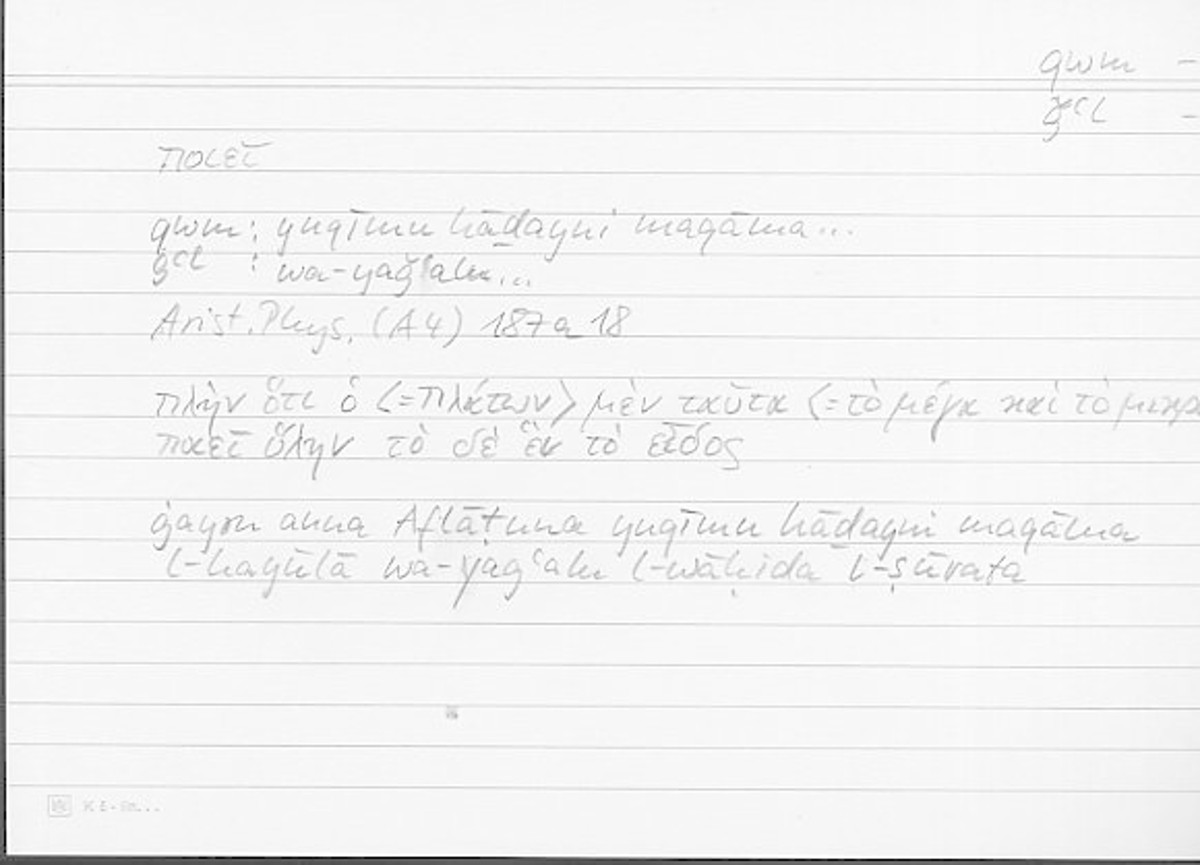 qwm –
ǧʿl –
ποιεῖ
qwm: yuqīmu hāḏayni maqāma...
ǧʿl : wa-yaǧʿalu...
Arist. Phys. (A 4) 187 a 18
πλὴν ὅτι ὁ <=Πλάτων> μὲν ταῦτα <=τὸ μέγα καὶ τὸ μικρ
ποιεῖ ὕλην τὸ δὲ ἓν τὸ εἶδος
ġayra anna Aflāṭuna yuqīmu hāḏayni maqāma
l-hayūlā wa-yaǧʿalu l-wāḥida l-ṣūrata